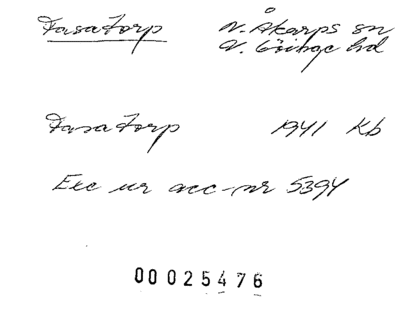 Fasatorp N. Åkarps sn
V. Göinge hd
Fasatorp 1941 Kb
Exc ur acc-nr 5394
00025476